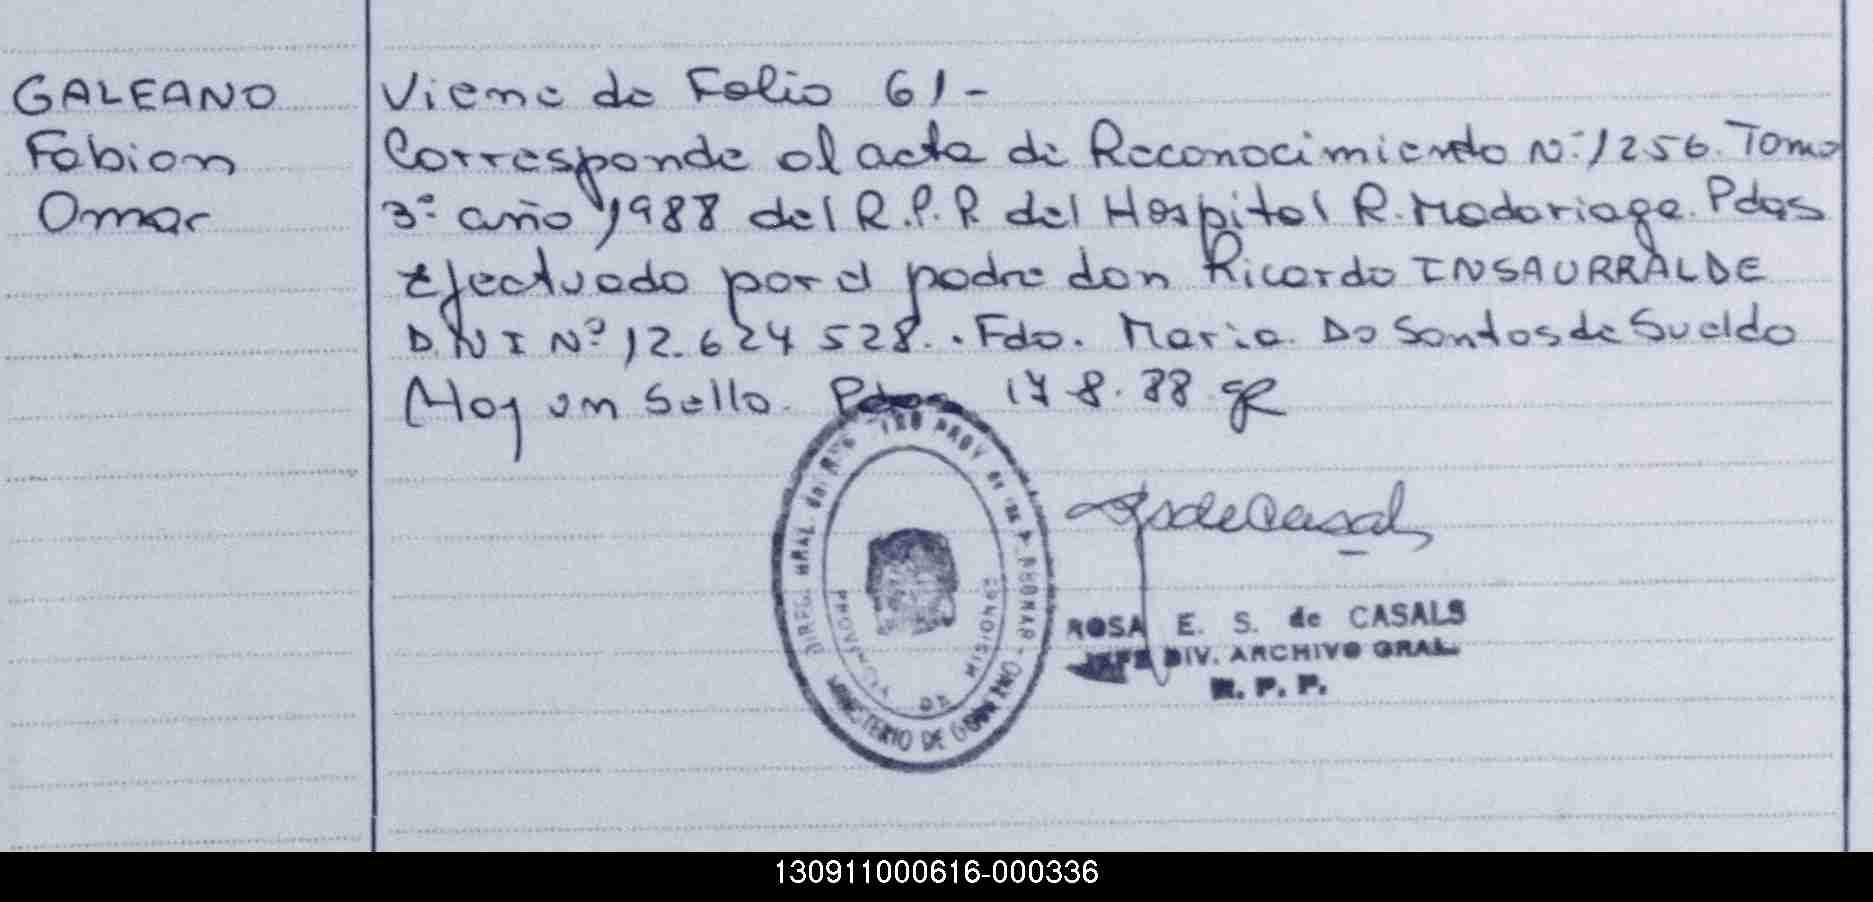 GALEANO
Fabian
Omar
Viene de Folio 61-
Corresponde al acta de Reconocimiento Nº 1256. Tomo
3º año 1988 del R.P.P. del Hospital R. Madariaga. Pdas
Efectuado por el padre don Ricardo INSAURRALDE
D.N.I Nº 12.624 528.. Fdo. Maria Do Santos de Sueldo
Hay un Sello. Pdas 17-8.88
MINISTERIO DE
ROSA E. S. de CASALS
JEFE DIV. ARCHIVO GRAL.
R. P. P.
130911000616-000336